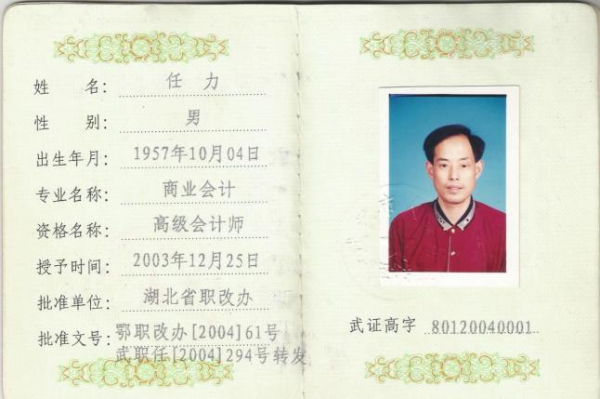 姓 名: 任 力
性 别: 男
出生年月: 1957年10月04日
专业名称: 商业会计
资格名称: 高级会计师
授予时间: 2003年12月25日
批准单位: 湖北省职改办
批准文号: 鄂职改办[2004]61号
武职任[2004]294号转发
武证高字 80120040001